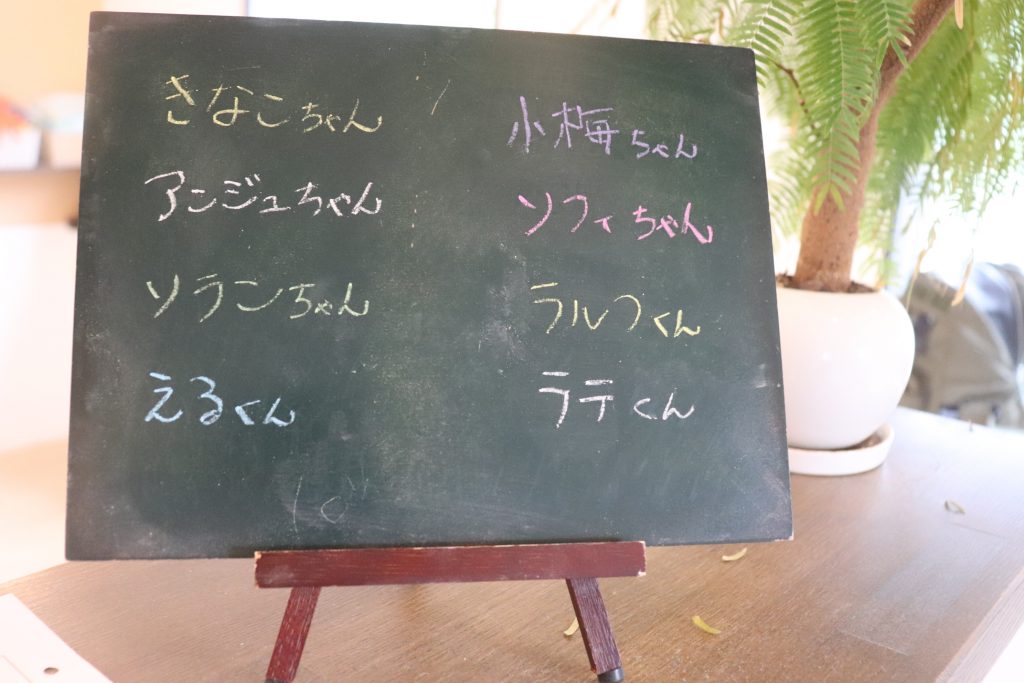 きなこちゃん
アンジュちゃん
ソランちゃん
えるくん
小梅ちゃん
ソフィちゃん
ラルフくん
ラテくん